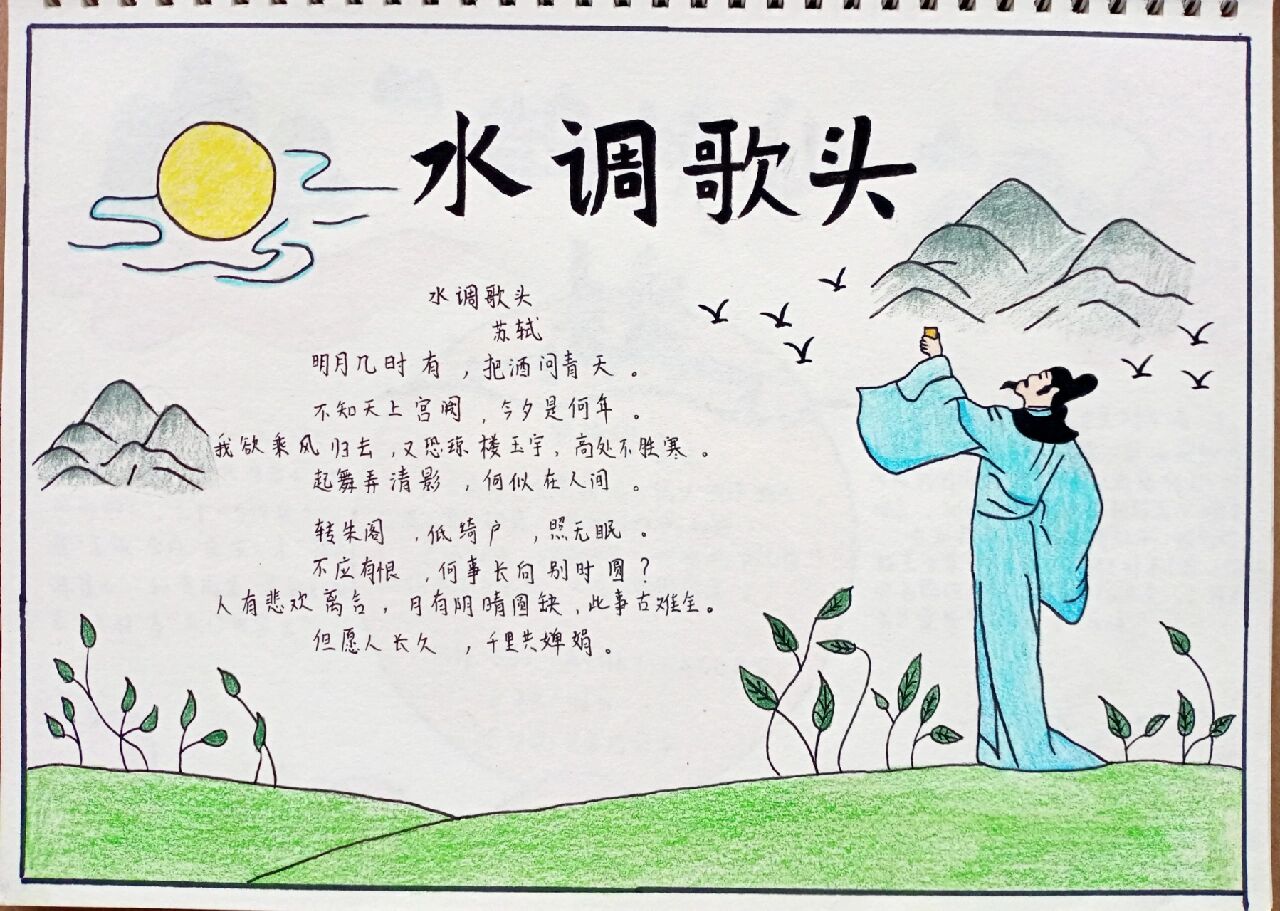 水调歌头
水调歌头
苏轼
明月几时有，把洒问青天。
不知天上宫阙，今夕是何年。
我欲乘风归去，又恐琼楼玉宇，高处不胜寒。
起舞弄清影，何似在人间。
转朱阁，低绮户，照无眠。
不应有恨，何事长向别时圆？
人有悲欢离合，月有阴晴圆缺，此事古难全。
但愿人长久，千里共婵娟。